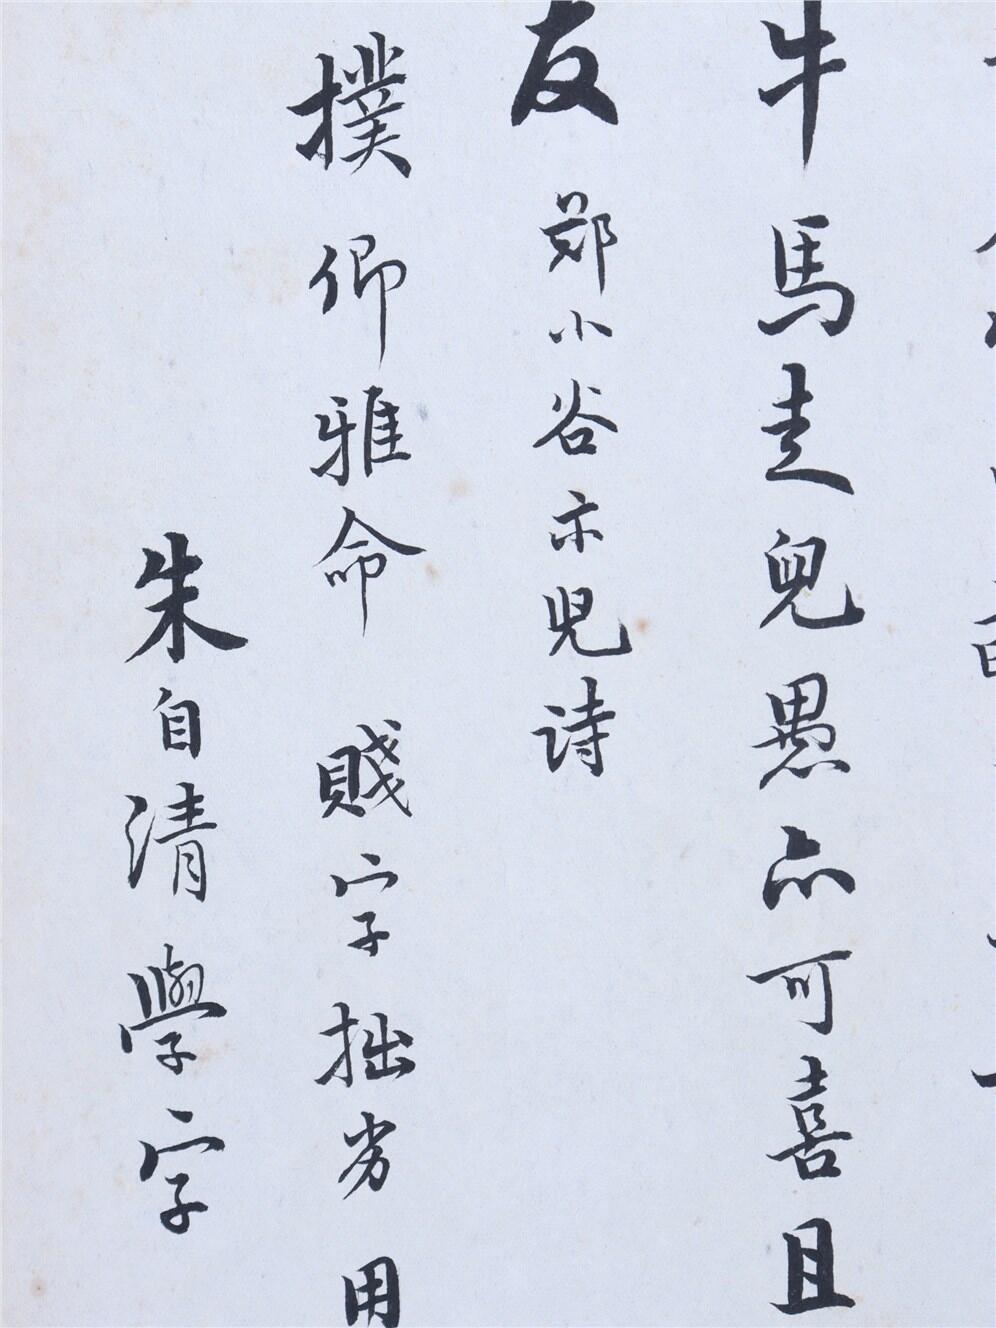 牛馬走兒愚亦可喜且
友 郑小谷示児诗
撲卿雅命 賤字拙劣用
朱自清學字